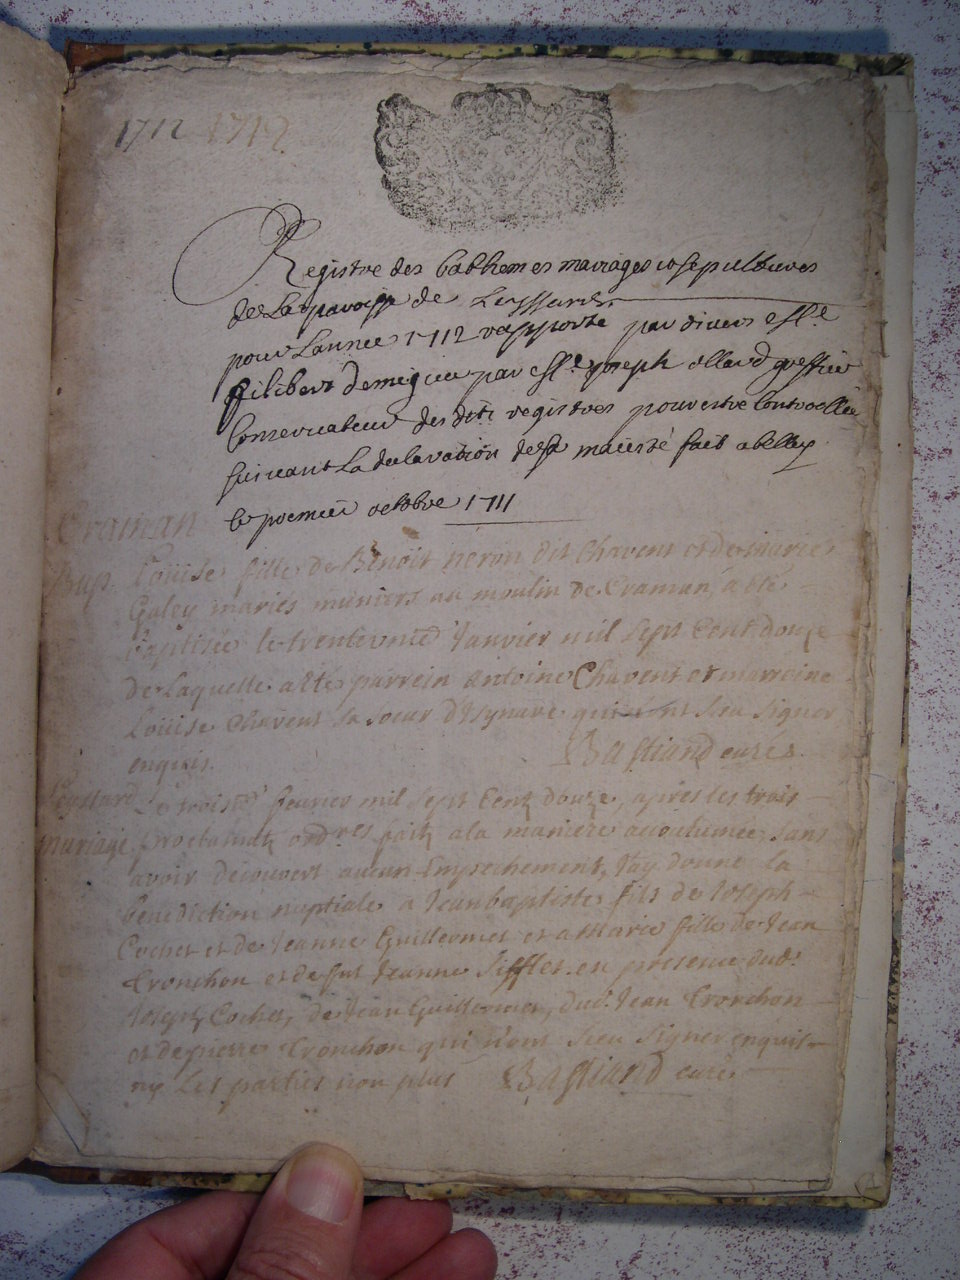 1712 1712
Registre des babtemes mariages et sepultures
de La paroisse de Leyssard
pour Lannee 1712 rapporté par divers Mre
filibert demigieu par Mre Joseph ollard greffier
Conservateur des dits registres pour estre Controllés
suivant La declaration de sa maiesté fait a belley
le premier octobre 1711
Craman
Bap. Loüise fille de Benoit neron dit Chavent et de Marie
Galey mariés muniers au moulin de Craman, a été
baptisée le trenteunié Janvier mil sept Cent douze
de Laquelle a été parrein Antoine Chavent et marreine
Loüise Chavent sa soeur d'Isynave qui n'ont sceu signer
enquis. Bastiand curé
Leyssard Le trois fevrier mil sept Cent douze, après les trois
Mariage proclamatz ordres faitz a la maniere accoutumée, sans
avoir découvert aucun Empechement, J'ay donné la
benediction nuptiale a Jean baptiste fils de Joseph
Cochet et de Jeanne Guillermet et a Marie fille de Jean
Tronchon et de fut Jeanne Sifflet en présence dud.
Joseph Cochet, de Jean Guillermet, dud. Jean Tronchon
et de pierre Tronchon qui n'ont sceu signer enquis
ny Les parties non plus Bastiand curé